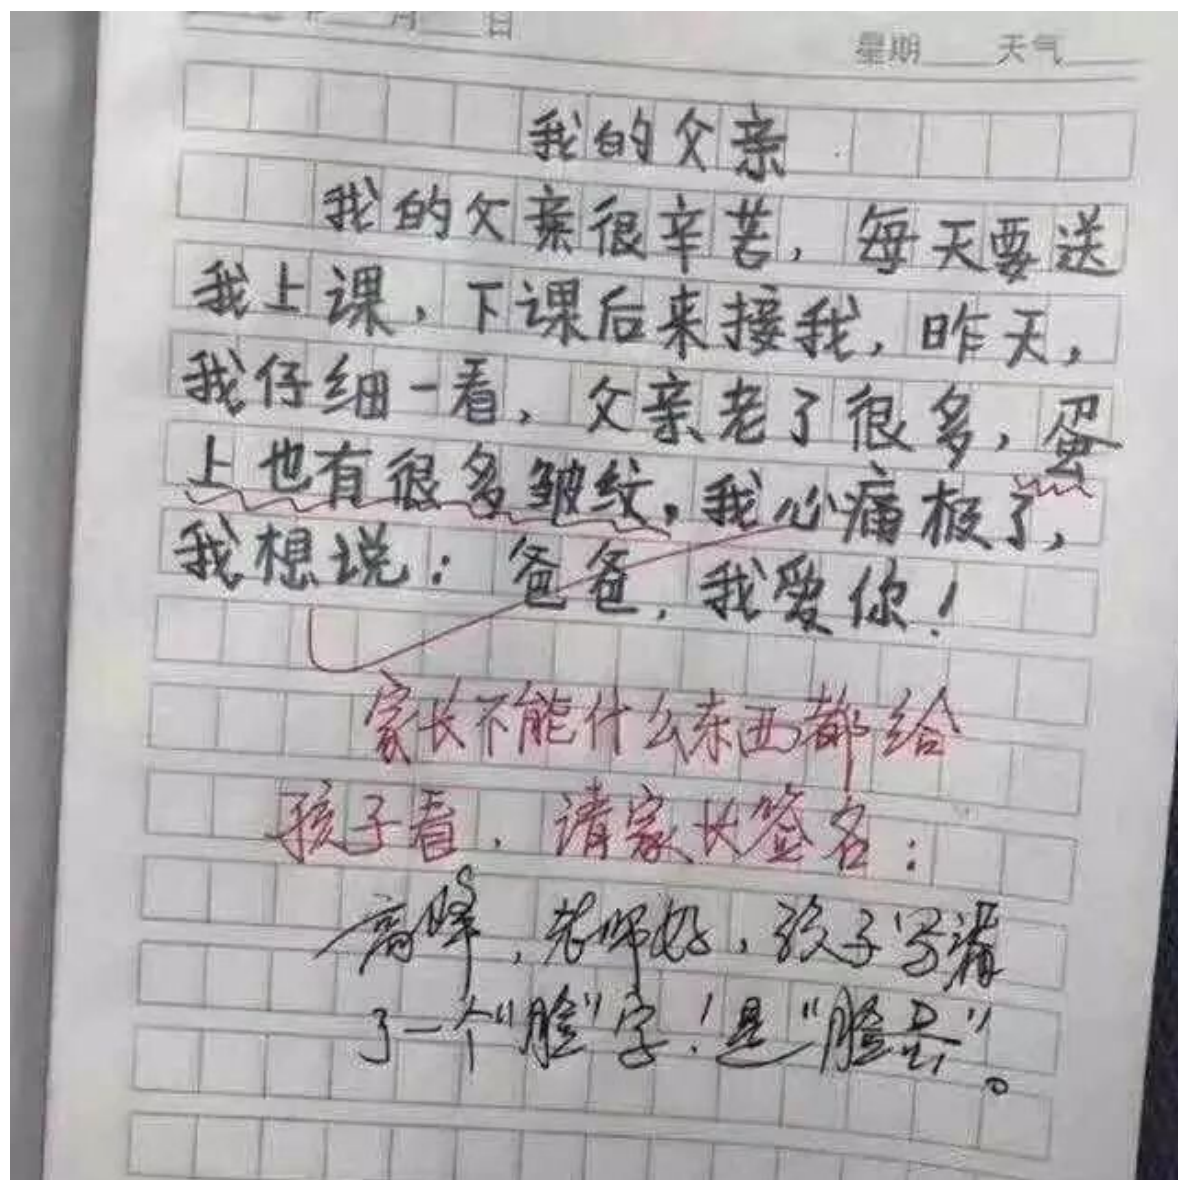 年 月 日
星期 天气
我的父亲
我的父亲很辛苦，每天要送
我上课，下课后来接我，昨天，
我仔细一看，父亲老了很多，蛋
上也有很多皱纹，我心痛极了，
我想说：爸爸，我爱你！
家长不能什么东西都给
孩子看，请家长签名：
高峰，老师好，孩子写漏
了一个“脸”字！是“脸蛋”。